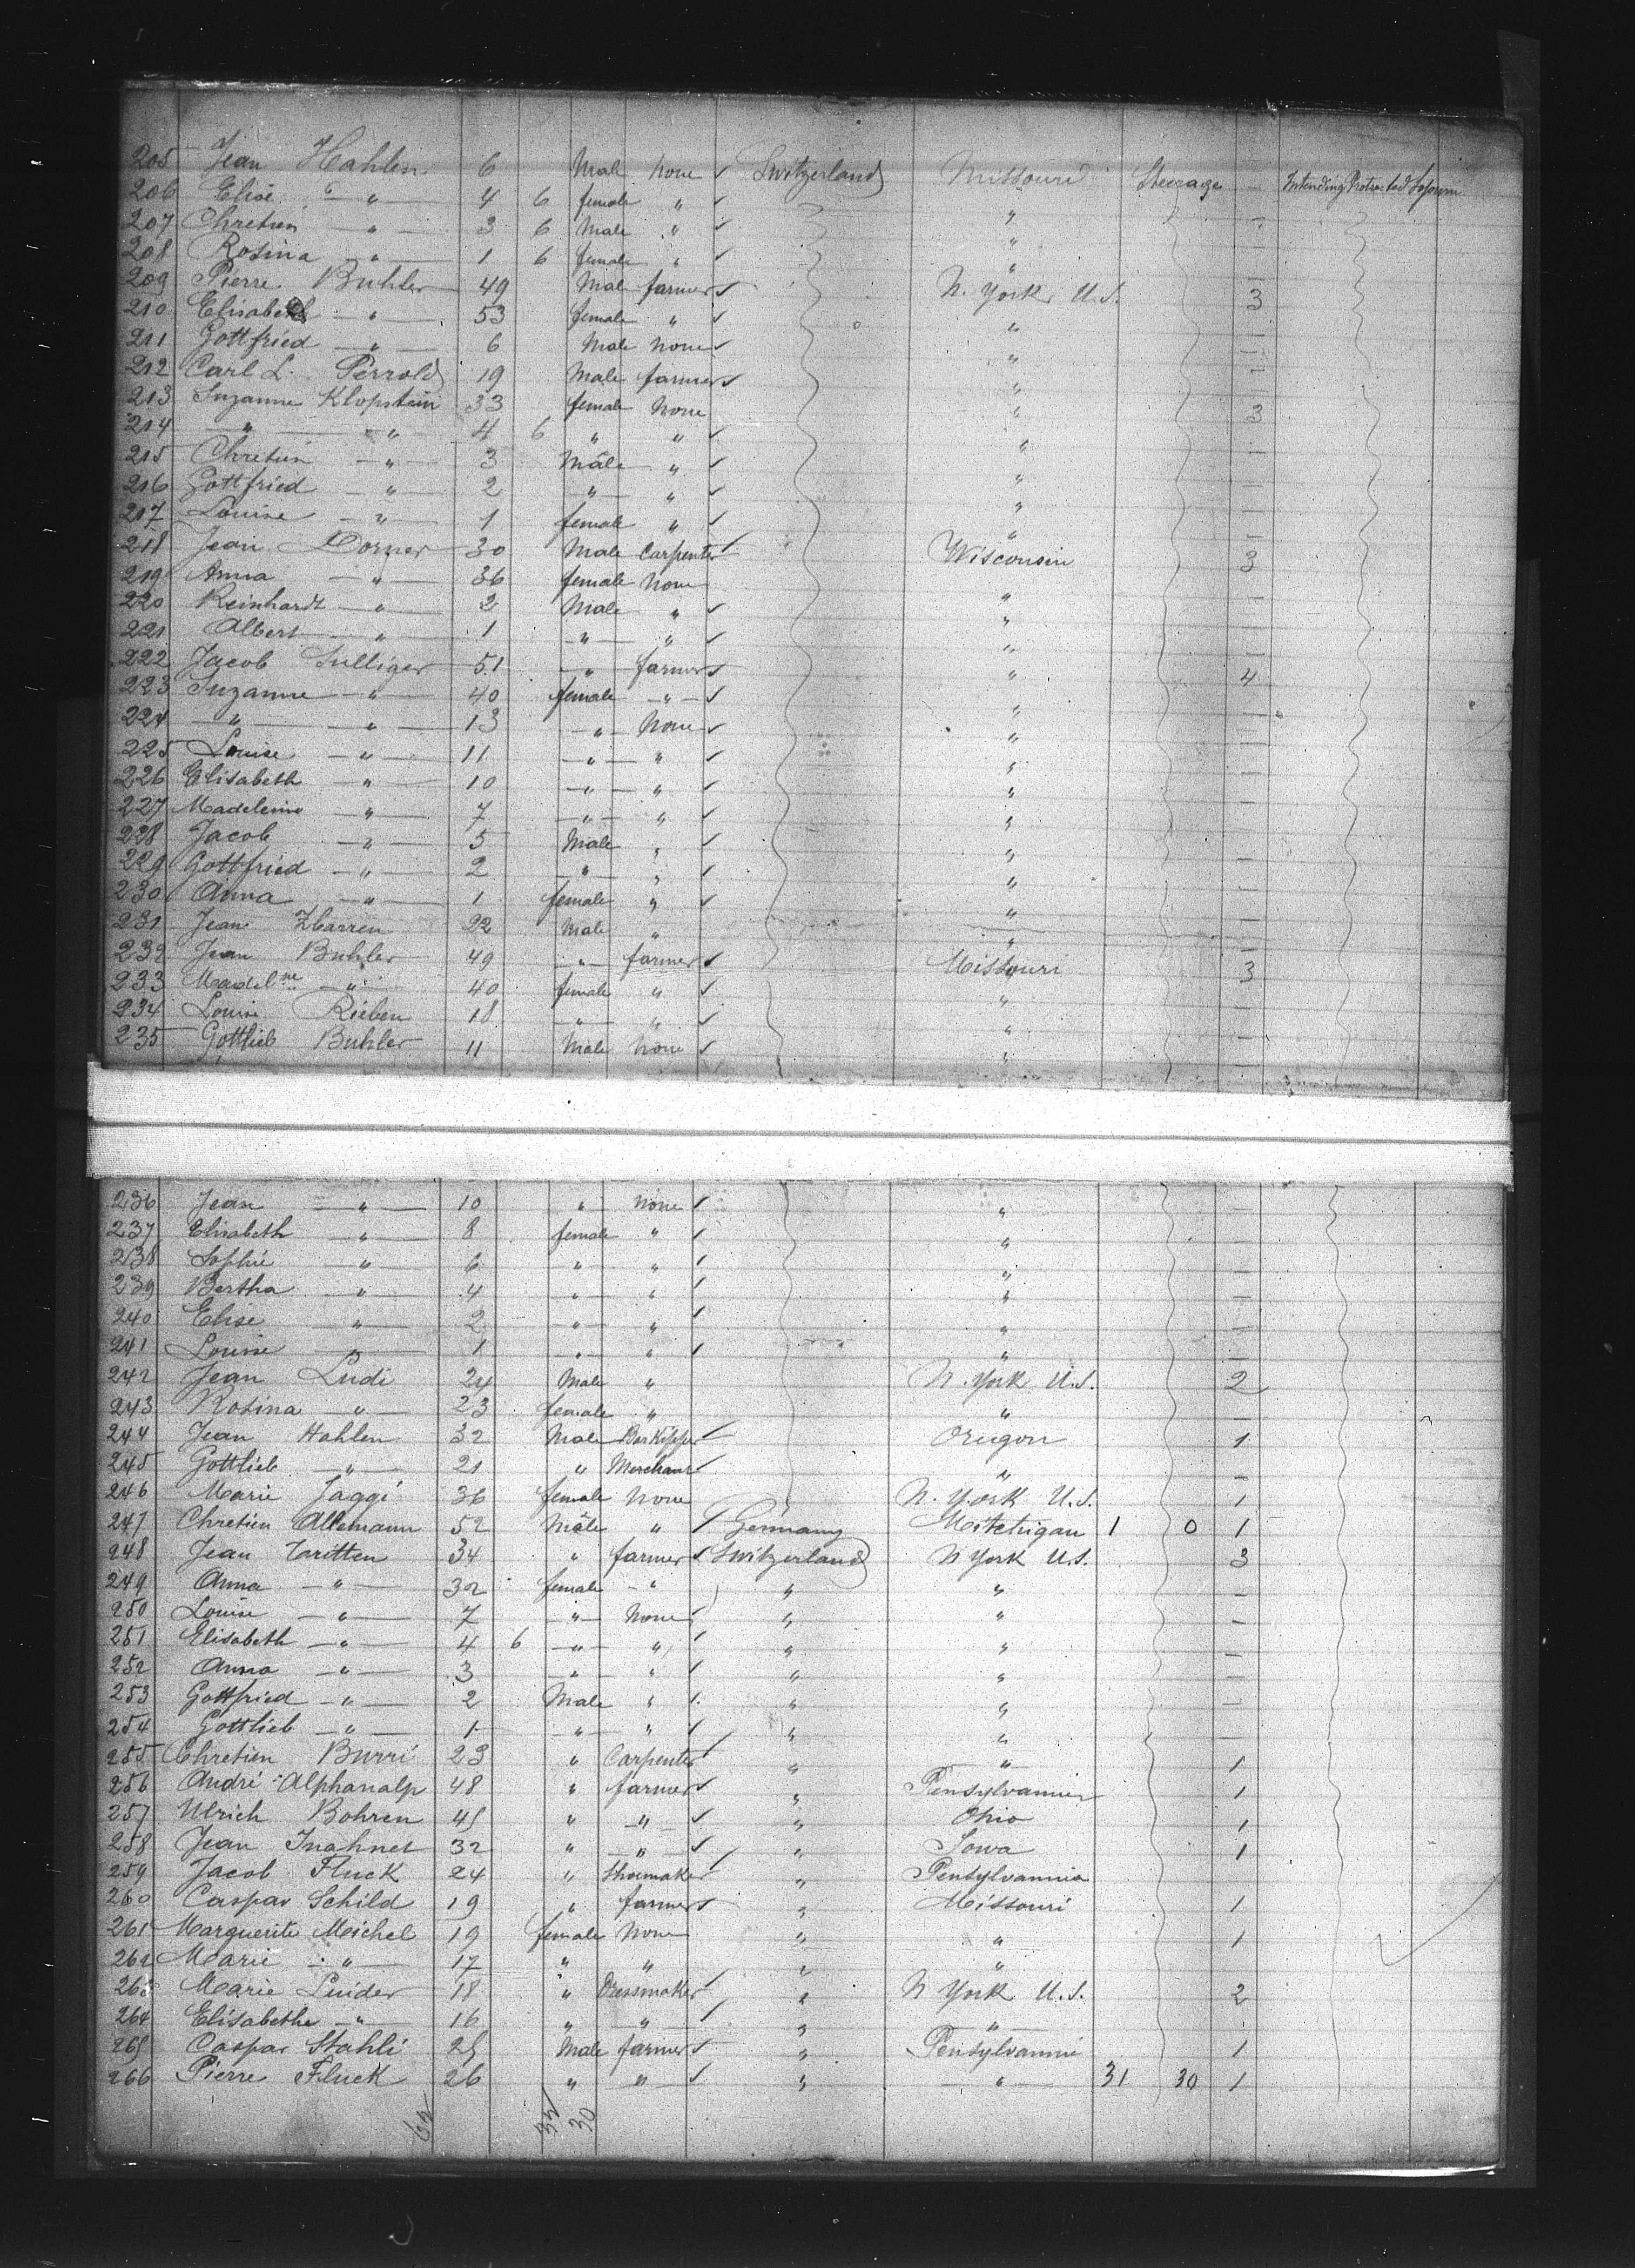 205 Jean Hahlen 6 Male None ✓ Switzerland Missouri Steerage — Intending Protracted Sojourn
206 Elise " " 4 6 female " ✓ " —
207 Chretien — " — 3 6 Male " ✓ " —
208 Rosina — " — 1 6 female " ✓ "
209 Pierre Buhler 49 Male farmer ✓ N. York U.S. 3
210 Elisabeth — " — 53 female " ✓ " —
211 Gottfried — " — 6 Male None ✓ " —
212 Carl L. Perrold 19 Male farmer ✓ " —
213 Suzanne Klopstein 33 female None " 3
214 — " — " — 4 6 " " ✓ " —
215 Chretien — " — 3 Male " ✓ " —
216 Gottfried — " — 2 — " — " ✓ " —
217 Louise — " — 1 female " ✓ " —
218 Jean Dorner 30 Male Carpenter ✓ Wisconsin 3
219 Anna — " — 36 female None " —
220 Reinhardt — " — 2 Male " ✓ " —
221 Albert — " — 1 — " — " ✓ " —
222 Jacob Sulliger 51 — " farmer ✓ " 4
223 Suzanne — " — 40 female — " — ✓ " —
224 — " — " — 13 — " None ✓ " —
225 Louise — " — 11 — " — " ✓ " —
226 Elisabeth — " — 10 — " — " ✓ " —
227 Madeleine — " — 7 — " — " ✓ " —
228 Jacob — " — 5 Male " ✓ " —
229 Gottfried — " — 2 — " — " ✓ " —
230 Anna — " — 1 female " ✓ " —
231 Jean Zbarren 22 Male " " —
232 Jean Buhler 49 — " — farmer ✓ Missouri 3
233 Madelne — " 40 female " ✓ " —
234 Louise Rieben 18 — " — " ✓ " —
235 Gottlieb Buhler 11 Male None ✓ " —
236 Jean — " — 10 " None ✓ " —
237 Elisabeth — " — 8 female " ✓ " —
238 Sophie — " — 6 " " ✓ " —
239 Bertha — " — 4 — " — " ✓ " —
240 Elise — " — 2 — " — " ✓ " —
241 Louise — " — 1 — " — " ✓ " —
242 Jean Ludi 24 Male " N. York U.S. 2
243 Rosina — " — 23 female " " —
244 Jean Hahlen 32 Male Barkipper ✓ Oregon 1
245 Gottlieb — " — 21 " Merchant ✓ " —
246 Marie Jaggi 36 female None N. York U.S. 1
247 Chretien Allemann 52 Male " ✓ Germany Mitchigan 1 0 1
248 Jean Tritten 34 " farmer ✓ Switzerland N York U.S. 3
249 Anna — " — 32 female — " " " —
250 Louise — " — 7 — " — None ✓ " " —
251 Elisabeth — " — 4 6 — " — " ✓ " " —
252 Anna — " — 3 — " — " ✓ " " —
253 Gottfried — " — 2 Male " ✓ " " —
254 Gottlieb — " — 1 — " — " ✓ " " —
255 Chretien Burri 23 " Carpenter ✓ " " 1
256 André Alphanalp 48 " farmer ✓ " Pensylvannie 1
257 Ulrich Bohren 45 " — " — ✓ " Ohio 1
258 Jean 32 " — " — ✓ " Iowa 1
259 Jacob Fluck 24 " Shoemaker ✓ " Pensylvannia
260 Caspar Schild 19 " farmer ✓ " Missouri 1
261 Marguerite Meichel 19 female None " " 1
262 Marie — " — 17 " " " "
263 Marie Luider 18 " Dressmaker ✓ " N York U.S. 2
264 Elisabethe — " — 16 " " ✓ " "
265 Caspar Stahli 25 Male farmer ✓ " Pensylvannie 1
266 Pierre Fluck 26 " — " — ✓ " — " — 31 30 1
62 32 30